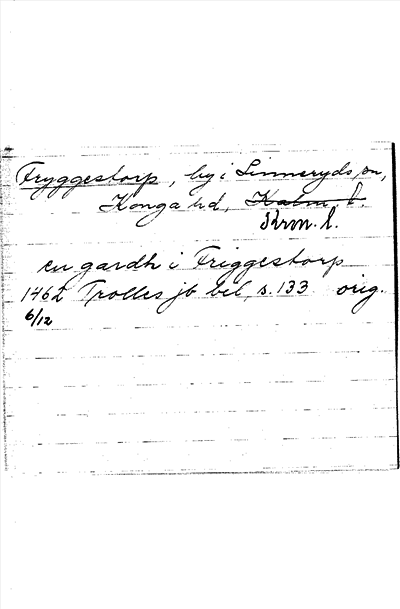 Fryggestorp, by i Linneryds sn,
Konga hd, Kalm. l.
Krm. l.
en gardh i Friggestorp
1462 Trolles jb bil, s. 133 orig.
6/12